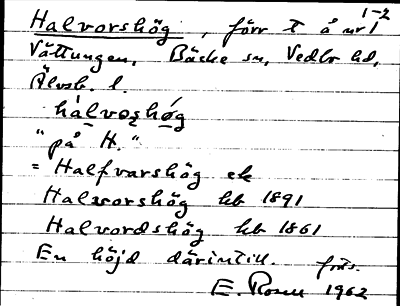 1-2
Halvorshög, förr t å nr 1
Vättungen, Bäcke sn, Vedbo hd,
Älvsb. l.
hálvoshǿg
"på H."
= Halfvarshög ek
Halvorshög hb 1891
Halvordshög hb 1861
En höjd därintill. forts.
E. Rosell 1962